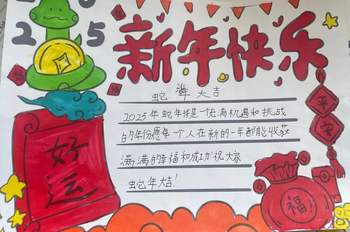 25
新年快乐
蛇年大吉
2025年蛇年将是一充满机遇和挑战
的年份愿每个人在新的一年都能收获
满满的幸福和成功祝大家
蛇年大吉!
好运
平安
福